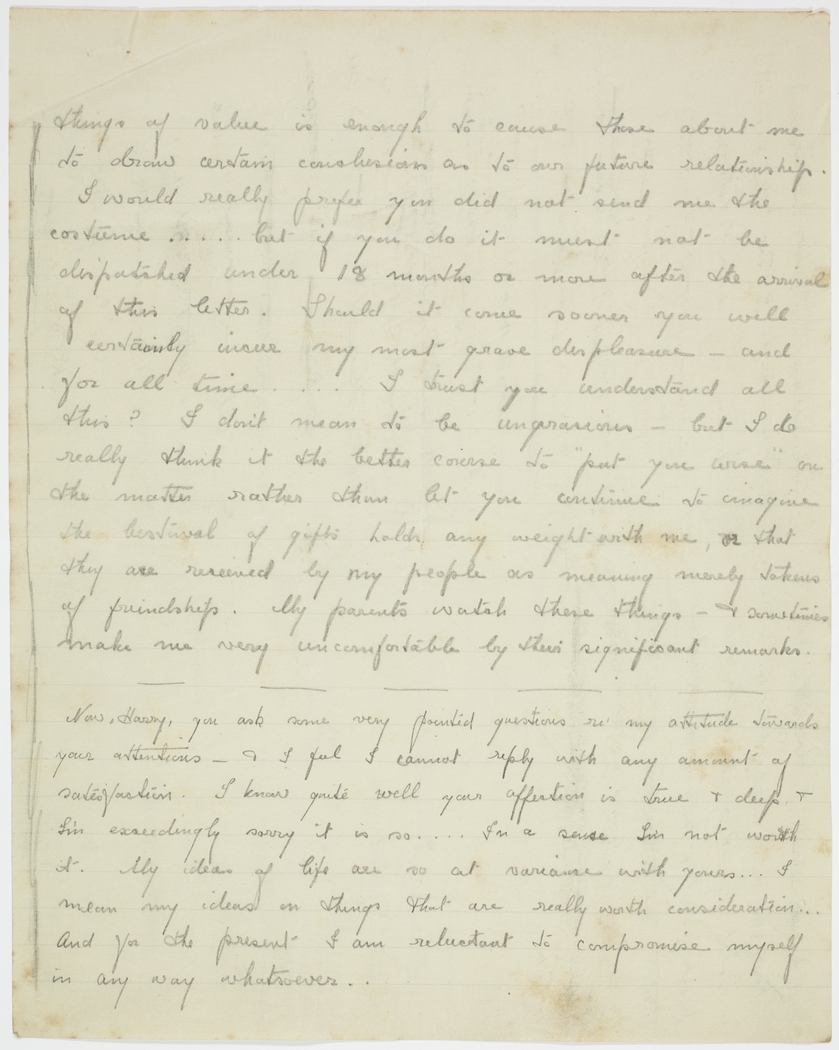 things of value is enough to cause those about me
to draw certain conclusions as to our future relationship.
I would really prefer you did not send me the
costume ..... but if you do it must not be
dispatched under 18 months or more after the arrival
of this letter. Should it come sooner you will
certainly incur my most grave displeasure - and
for all time .... I trust you understand all
this? I don't mean to be ungracious - but I do
really think it the better course to "put you wise" on
the matter rather than let you continue to imagine
the bestowal of gifts holds any weight with me, or that
they are received by my people as meaning merely tokens
of friendship. My parents watch these things - & sometimes
make me very uncomfortable by their significant remarks.
Now, Harry, you ask some very pointed questions re' my attitude towards
your attentions - & I feel I cannot reply with any amount of
satisfaction. I know quite well your affection is true & deep &
I'm exceedingly sorry it is so.... In a sense I'm not worth
it. My ideas of life are so at variance with yours... I
mean my ideas on things that are really worth consideration...
And for the present I am reluctant to compromise myself
in any way whatsoever..